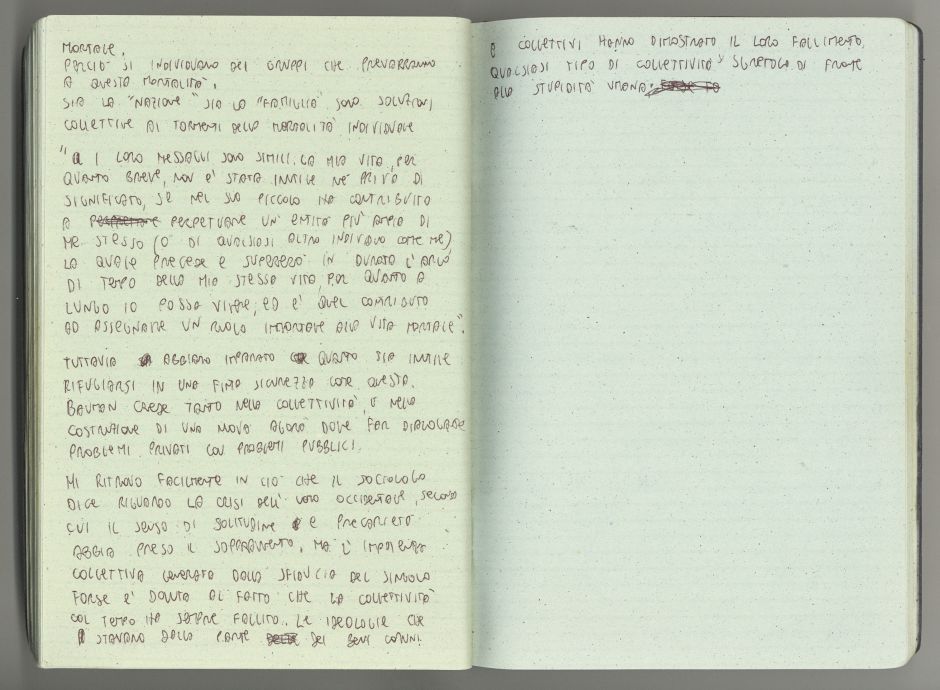 MORTALE.
PERCIÒ SI INDIVIDUANO DEI GRUPPI CHE PREVARRANNO
A QUESTA MORTALITÀ.
SIA LA "NAZIONE" SIA LA "FAMIGLIA" SONO SOLUZIONI
COLLETTIVE AI TORMENTI DELLA MORTALITÀ INDIVIDUALE
" I LORO MESSAGGI SONO SIMILI: LA MIA VITA, PER
QUANTO BREVE, NON E' STATA INUTILE NÉ PRIVA DI
SIGNIFICATO, SE NEL SUO PICCOLO HA CONTRIBUITO
A PERPETUARE UN'ENTITÀ PIÙ AMPIA DI
ME STESSO (O DI QUALSIASI ALTRO INDIVIDUO COME ME)
LA QUALE PRECEDE E SUPERERÀ IN DURATA L'ARCO
DI TEMPO DELLA MIA STESSA VITA, PER QUANTO A
LUNGO IO POSSA VIVERE; ED E' QUEL CONTRIBUTO
AD ASSEGNARE UN RUOLO IMMORTALE ALLA VITA MORTALE".
TUTTAVIA ABBIAMO IMPARATO QUANTO SIA INUTILE
RIFUGIARSI IN UNA FINTA SICUREZZA COME QUESTA.
BAUMAN CREDE TANTO NELLA COLLETTIVITÀ, O NELLA
COSTRUZIONE DI UNA NUOVA AGORÀ DOVE FAR DIALOGARE
PROBLEMI PRIVATI CON PROBLEMI PUBBLICI.
MI RITROVO FACILMENTE IN CIÒ CHE IL SOCIOLOGO
DICE RIGUARDO LA CRISI DELL'UOMO OCCIDENTALE, SECONDO
CUI IL SENSO DI SOLITUDINE E PRECARIETÀ
ABBIA PRESO IL SOPRAVVENTO, MA L'IMPOTENZA
COLLETTIVA GENERATA DALLA SFIDUCIA DEL SINGOLO
FORSE E' DOVUTA AL FATTO CHE LA COLLETTIVITÀ
COL TEMPO HA SEMPRE FALLITO. LE IDEOLOGIE CHE
STAVANO DALLA PARTE DEI BENI COMUNI
E COLLETTIVI HANNO DIMOSTRATO IL LORO FALLIMENTO.
QUALSIASI TIPO DI COLLETTIVITÀ SI SGRETOLA DI FRONTE
ALLA STUPIDITÀ UMANA.